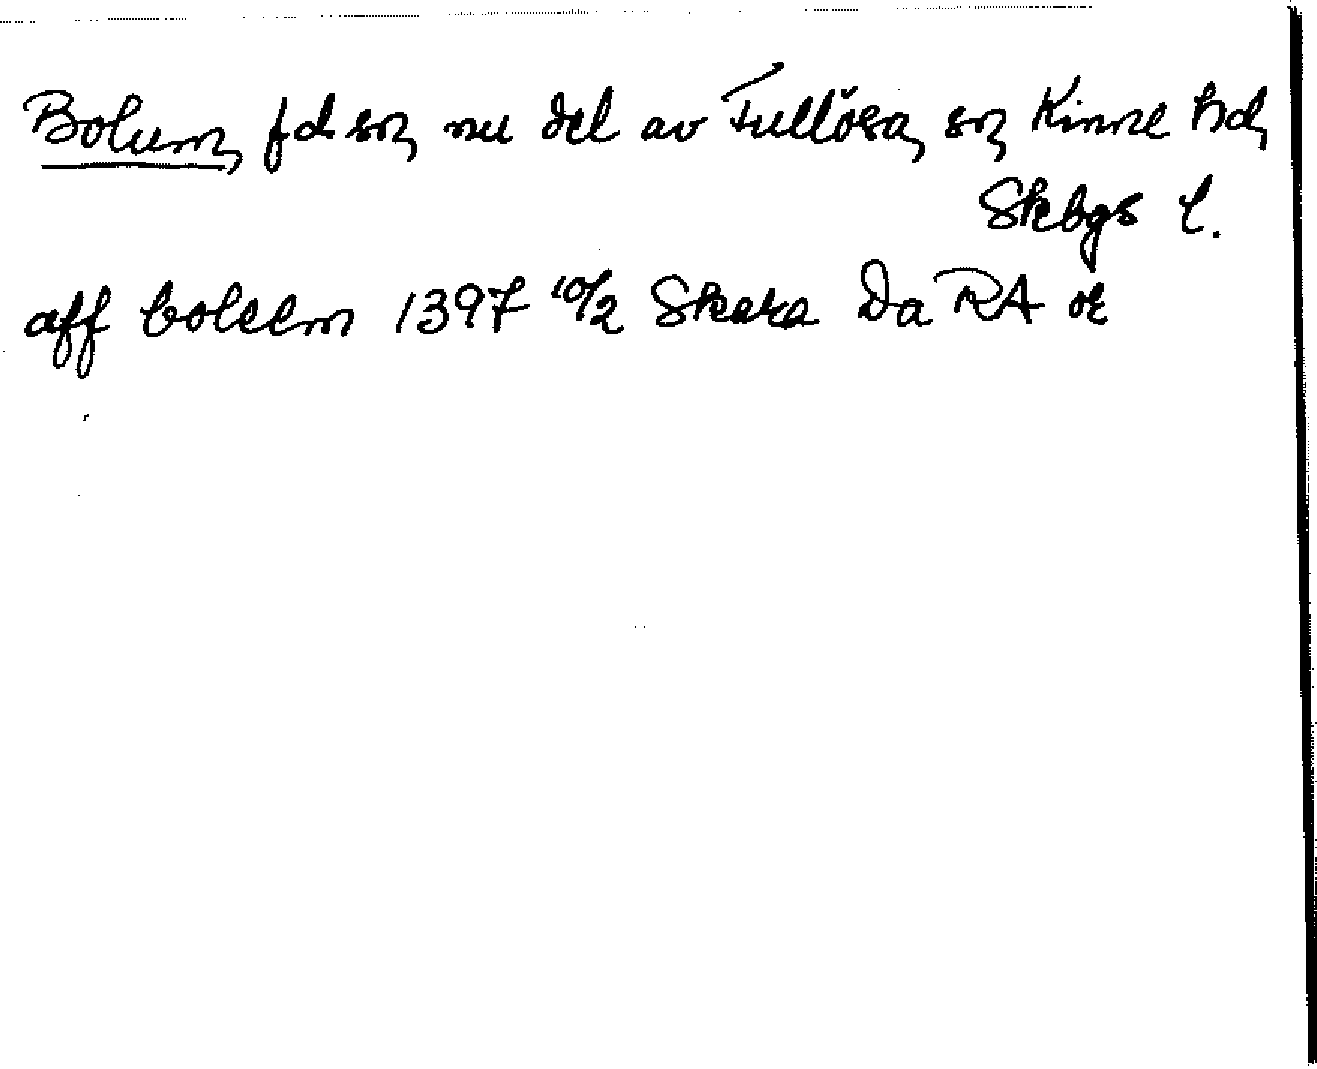 Bolum, fd sn, nu del av Fullösa, sn, Kinne hd,
Skbgs l.
aff bolem 1397 10/2 Skara Da RA or